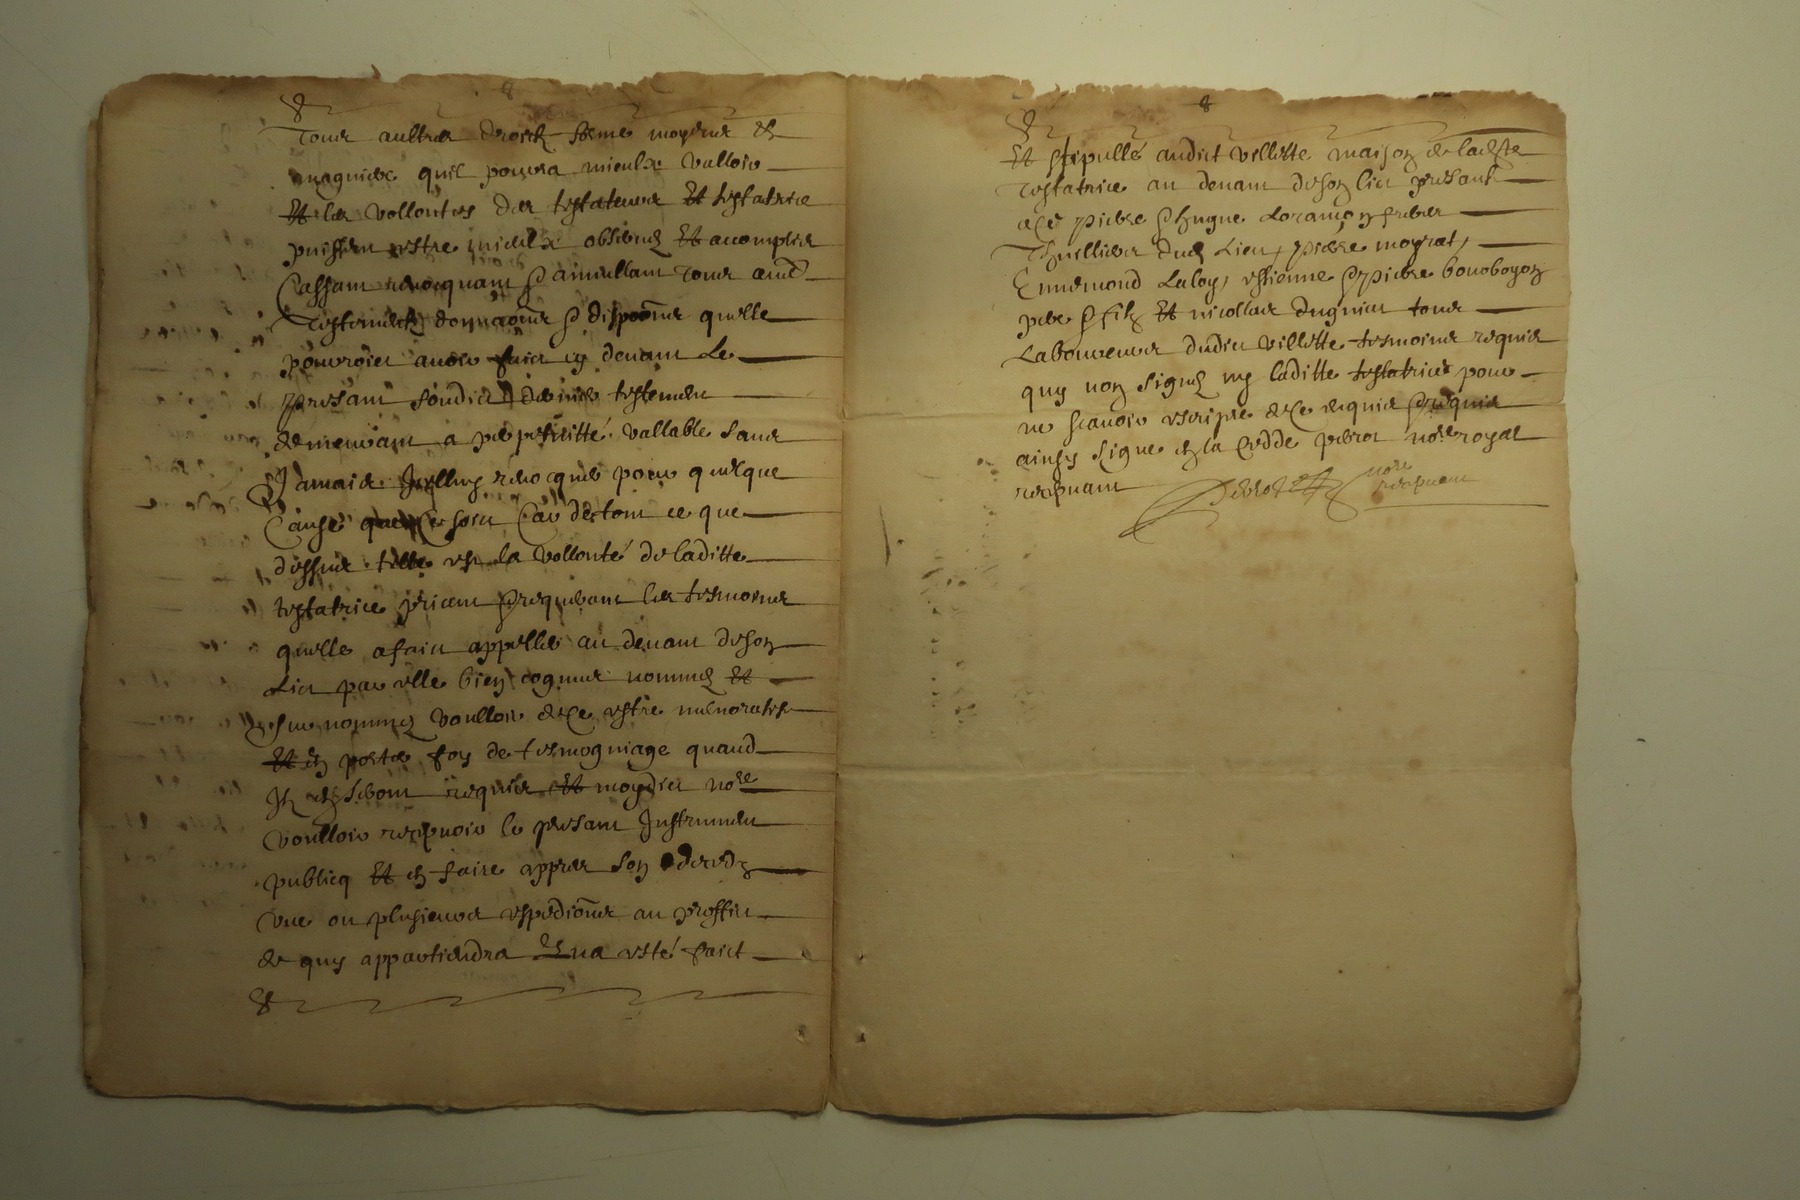 Tous aultres droictz forme moyens et
magniere quil pourra mieulx valloir
Et les vollontés des testateurs Et testatrice
puissent estre mieulx observez Et acomplies
Cassant revocquant & annullant tous aultres
Testamentz donnaons & dispoons quelle
pourroict avoir faict cy devant Le
present sondict dernier testement
demeurant a perpetuitté vallable sans
Jamais revocquer pour quelque
Cause que Ce soict Car de tout ce que
dessus telle est la vollonté de laditte
testatrice priant & requerant les tesmoins
quelle a faict appeller au devant de son
Lict par elle bien cognus nommez Et
surnommez voulloir de Ce estre memoratifs
Et en porter foy de tesmogniage quand
Ilz en seront requis Et moydict nore
voulloir recepvoir le present Instrument
publicq Et en faire appres son decedz
une ou plusieurs expedions au proffict
de quy appartiendra Et na esté faict
Et stipullé audict villette maison de laditte
testatrice au devant de son lict present
a Ce pierre & hugue freres
Thuillier dud Lieu, pierre moyrat,
Ennemond Laloy, estienne & pierre
pere & filz Et nicollas dugniet tous
Laboureurs dudict villette tesmoins requis
quy nont signez ny laditte testatrice pour
ne scavoir escripre de Ce enquis & requis
ainsy signé en la cedde perrot nore royal
recepvant Perrot nore
recepvant